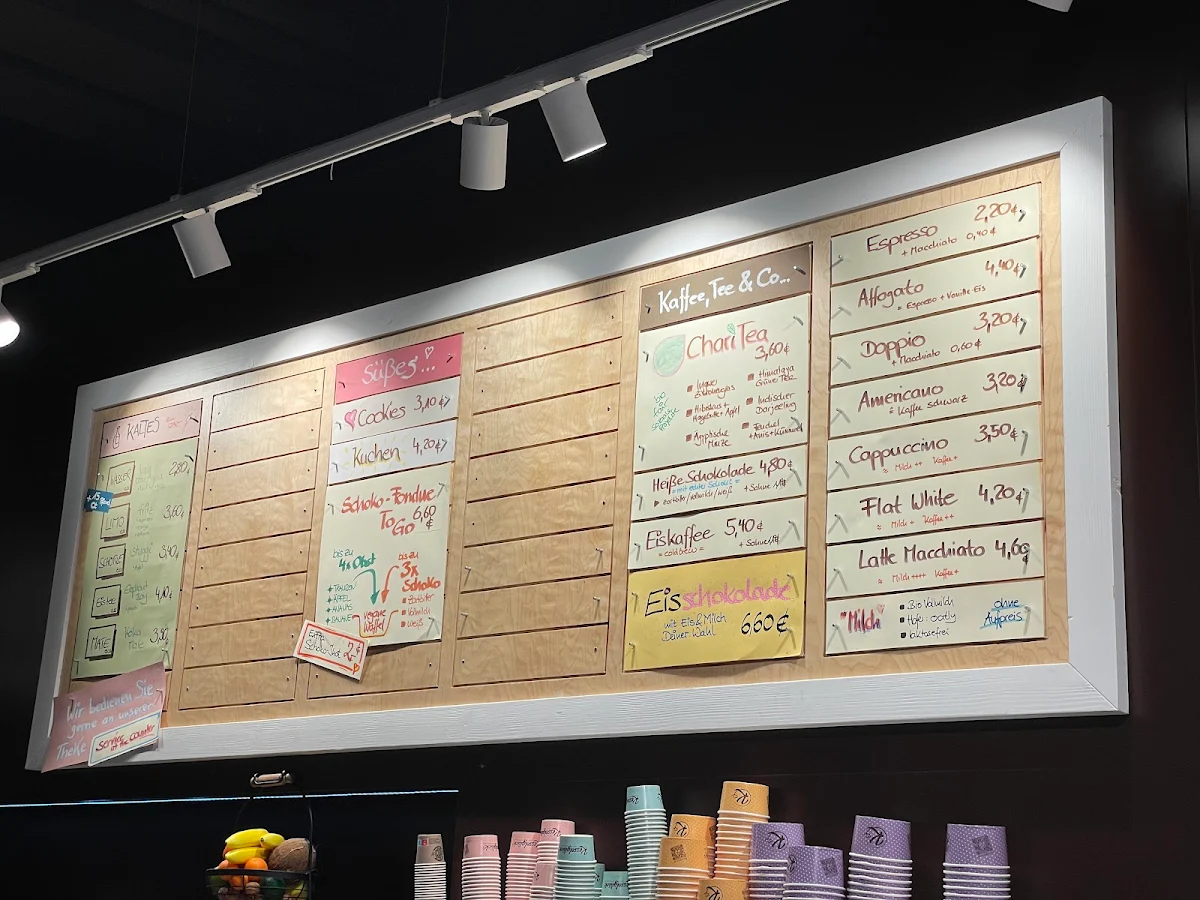 KALTES
WASSER 2,80
+15 Pfand Ct
LIMO 3,60
SCHORLE 3,40
EISTEE 4,10
MATE 3,30
Wir bedienen Sie
gerne an unserer
Theke
Service
at the counter
Süßes...
Cookies 3,10 €
Kuchen 4,20 €
Schoko-Fondue
To Go 6,60 €
bis zu
4x Obst
TRAUBEN
APFEL
ANANAS
BANANE
bis zu
3x
Schoko
Zartbitter
Vollmilch
weiß
vegane
Waffel
EXTRA
Schoko-Shot 2€
Kaffee, Tee & Co...
ChariTea
3,60 €
Hibiskus +
Hagebutte + Apfel
Himalaya
Grüner Tee
Indischer
Darjeeling
Fenchel
+ Anis + Kümmel
Heiße Schokolade 4,80 €
= mit echter Schoki =
zartbitter/vollmilch/weiß + Sahne
Eiskaffee 5,40 €
= cold brew = + Sahne
Eisschokolade
mit Eis & Milch
Deiner Wahl 6,60 €
Espresso 2,20 €
+ Macchiato 0,40 €
Affogato 4,40 €
= Espresso + Vanille-Eis
Doppio 3,20 €
+ Macchiato 0,60 €
Americano 3,20
= Kaffee schwarz
Cappuccino 3,50 €
= Milch ++ Kaffee +
Flat White 4,20 €
= Milch + Kaffee ++
Latte Macchiato 4,60
= Milch ++++ Kaffee +
"Milch"
Bio Vollmilch
Hafer: oatly
laktosefrei
ohne
Aufpreis